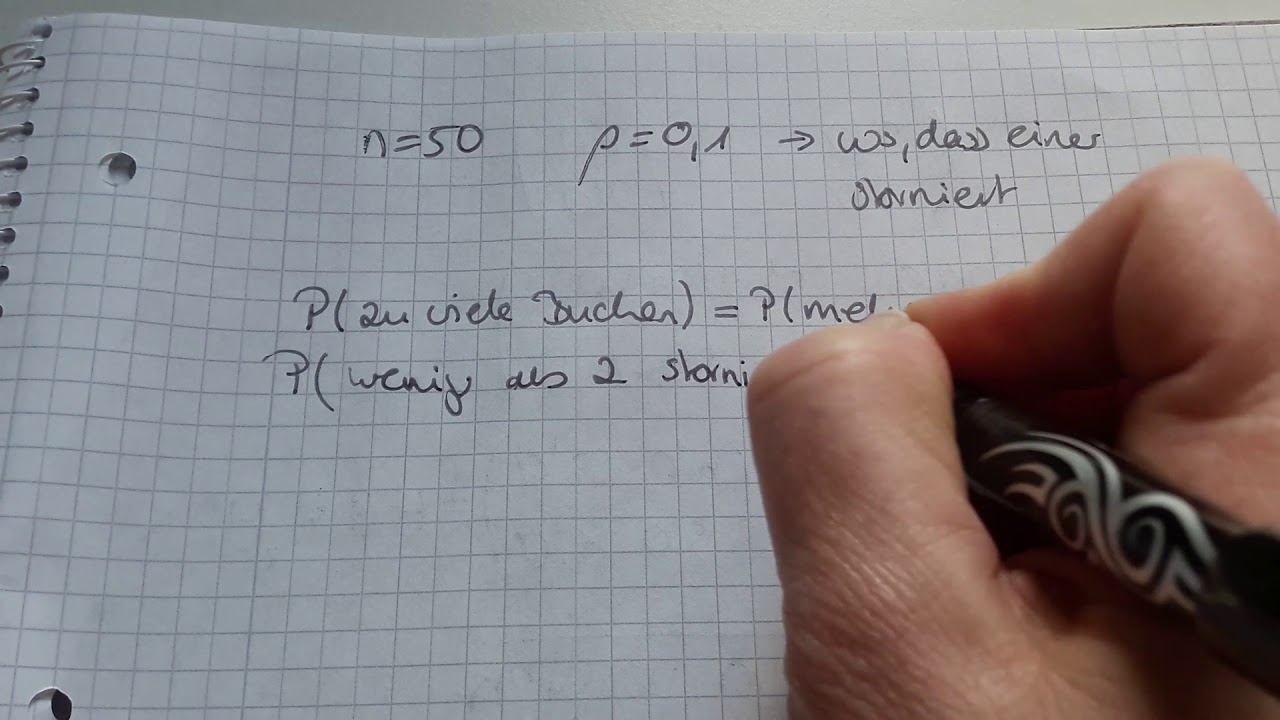 n=50 p=0,1 → ws, dass einer
storniert
P(zu viele Buchen) = P(meh
P(wenig als 2 storni